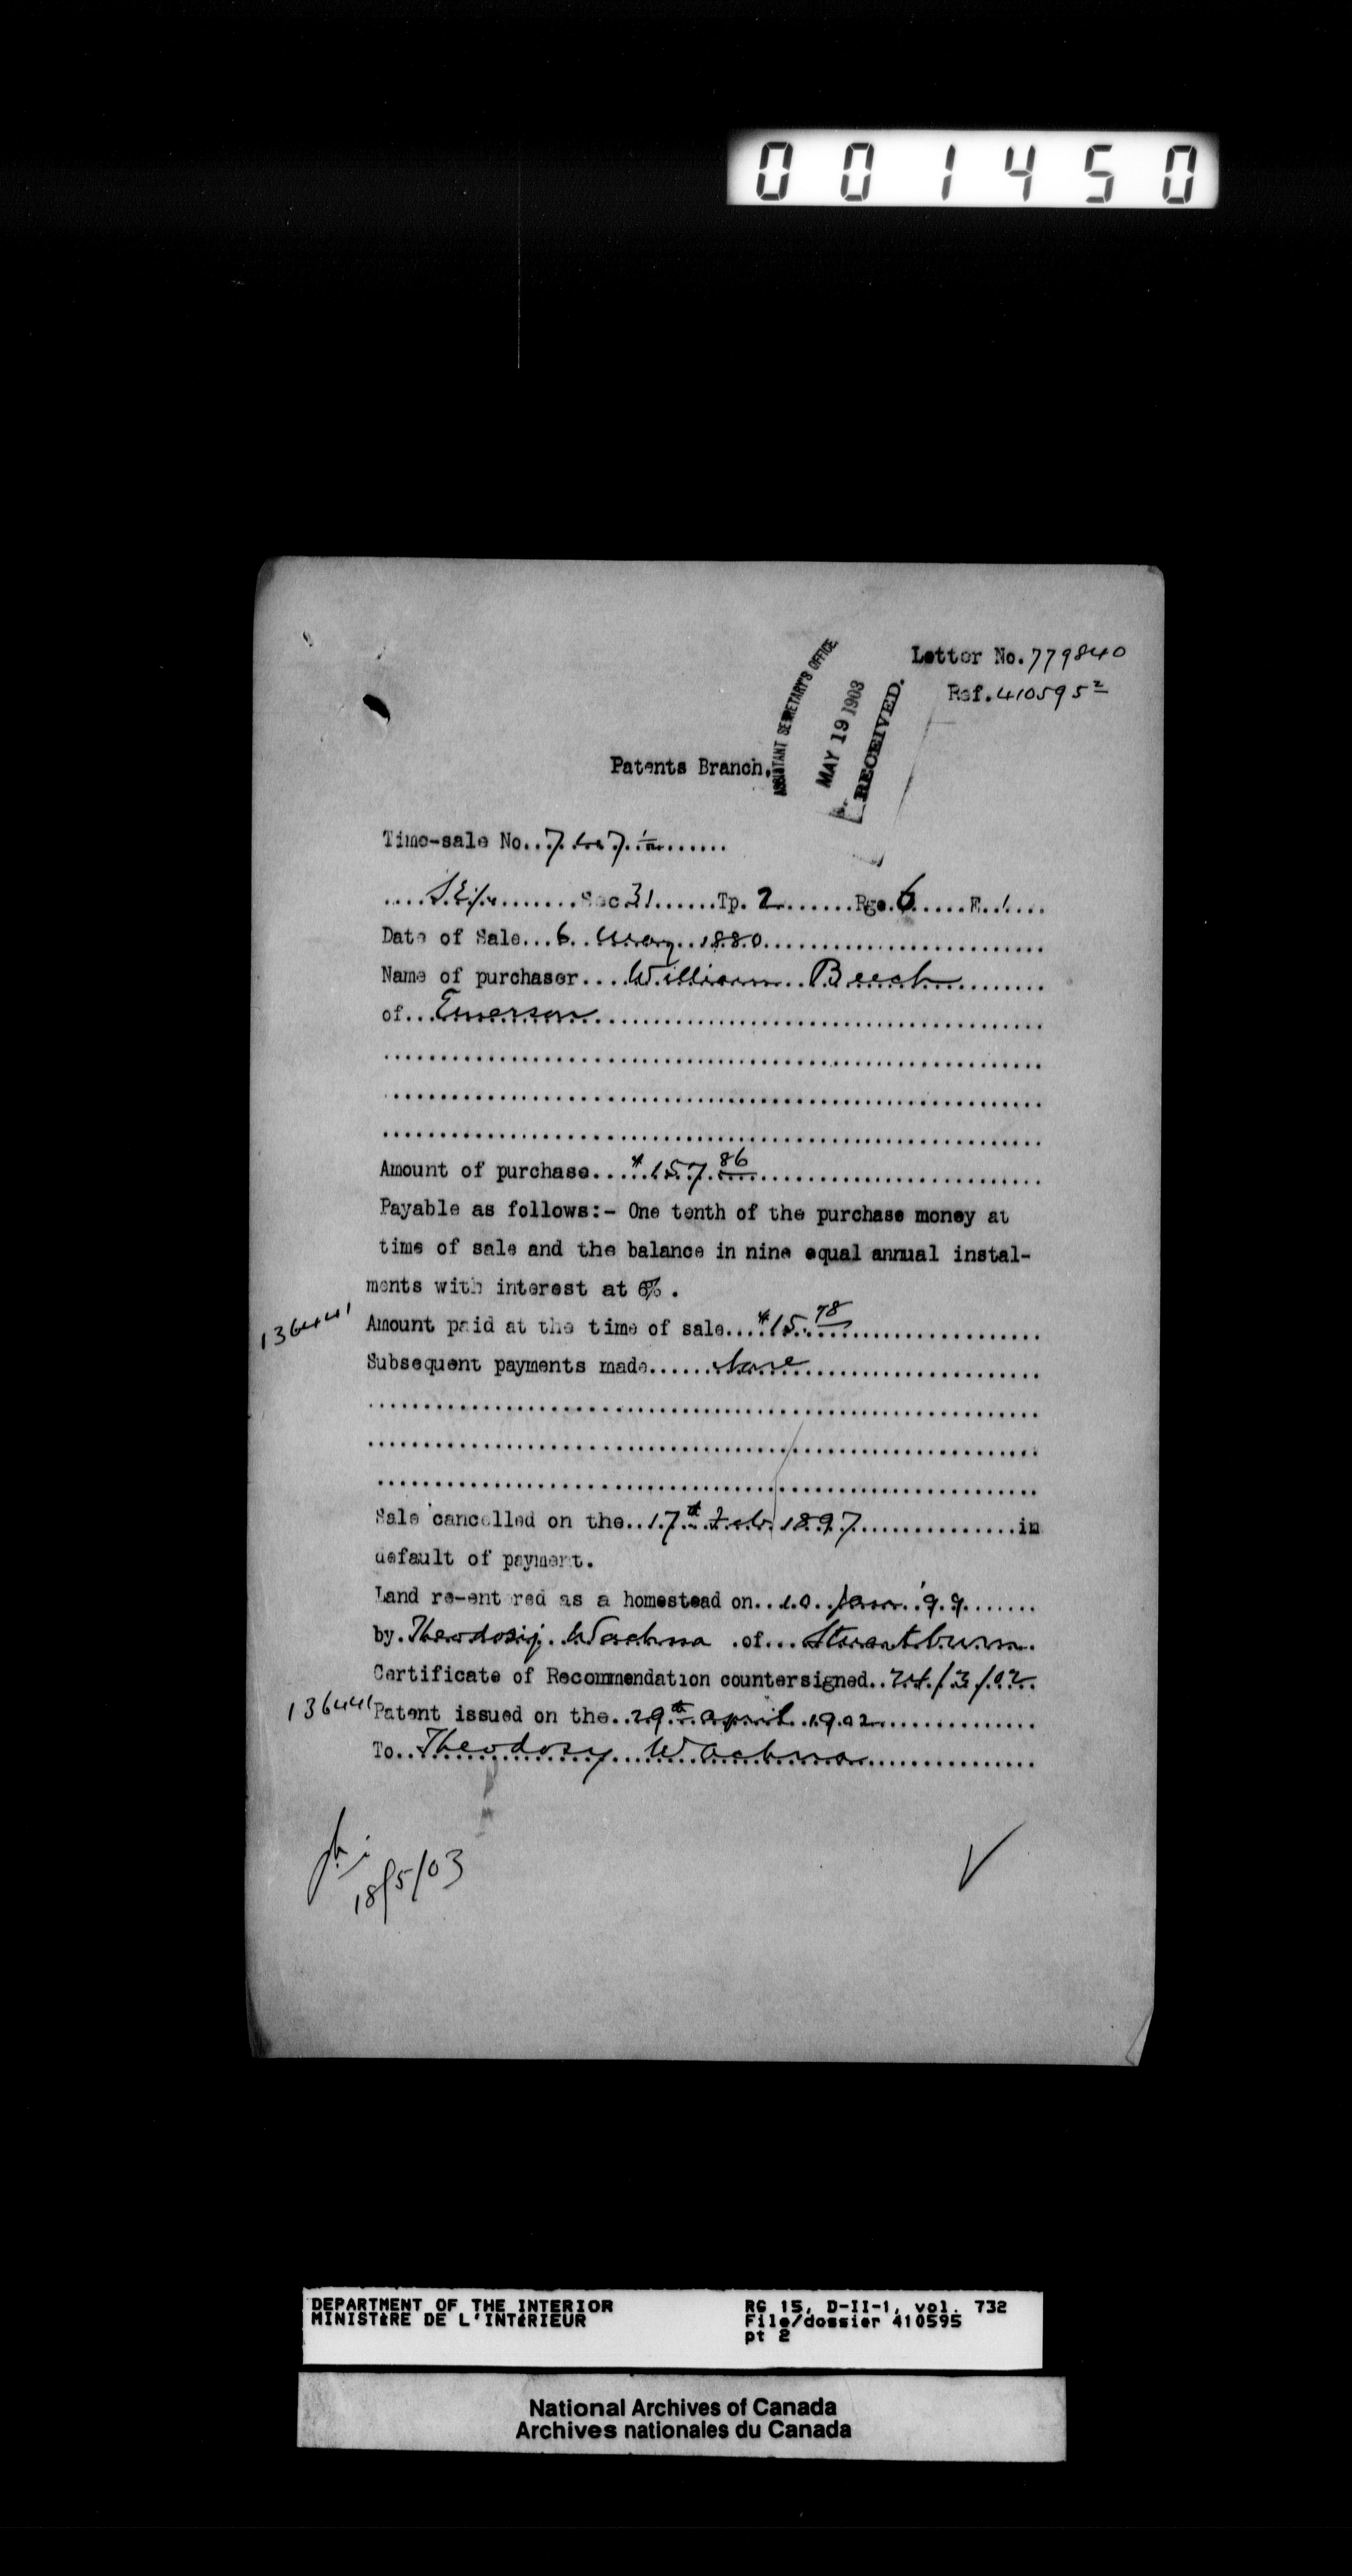 001450
Letter No. 779840
Ref. 410595²
ASSISTANT SECRETARY'S OFFICE.
MAY 19 1903
RECEIVED.
Patents Branch.
Time-sale No...7
....S.E.¼.........Sec 31......Tp. 2.......Rge. 6.....E. 1....
Date of Sale...6. May. 1880.............................
Name of purchaser....William..Beech.........
of...Emerson..........................................
Amount of purchase....$157.86..............................
Payable as follows:- One tenth of the purchase money at
time of sale and the balance in nine equal annual instal-
ments with interest at 6%.
136441
Amount paid at the time of sale....$15.78....................
Subsequent payments made......None........................
Sale cancelled on the..17th Feb. 1897................in
default of payment.
Land re-entered as a homestead on..10..Jan. '99.......
by. Theodosij. Wachna .of...Stuartburn.
Certificate of Recommendation countersigned..24/3/02.
136441
Patent issued on the..29th April. 1902...............
To..Theodosy Wachna.................
18/5/03
DEPARTMENT OF THE INTERIOR
MINISTÈRE DE L'INTÉRIEUR
RG 15, D-II-1, vol. 732
File/dossier 410595
pt 2
National Archives of Canada
Archives nationales du Canada